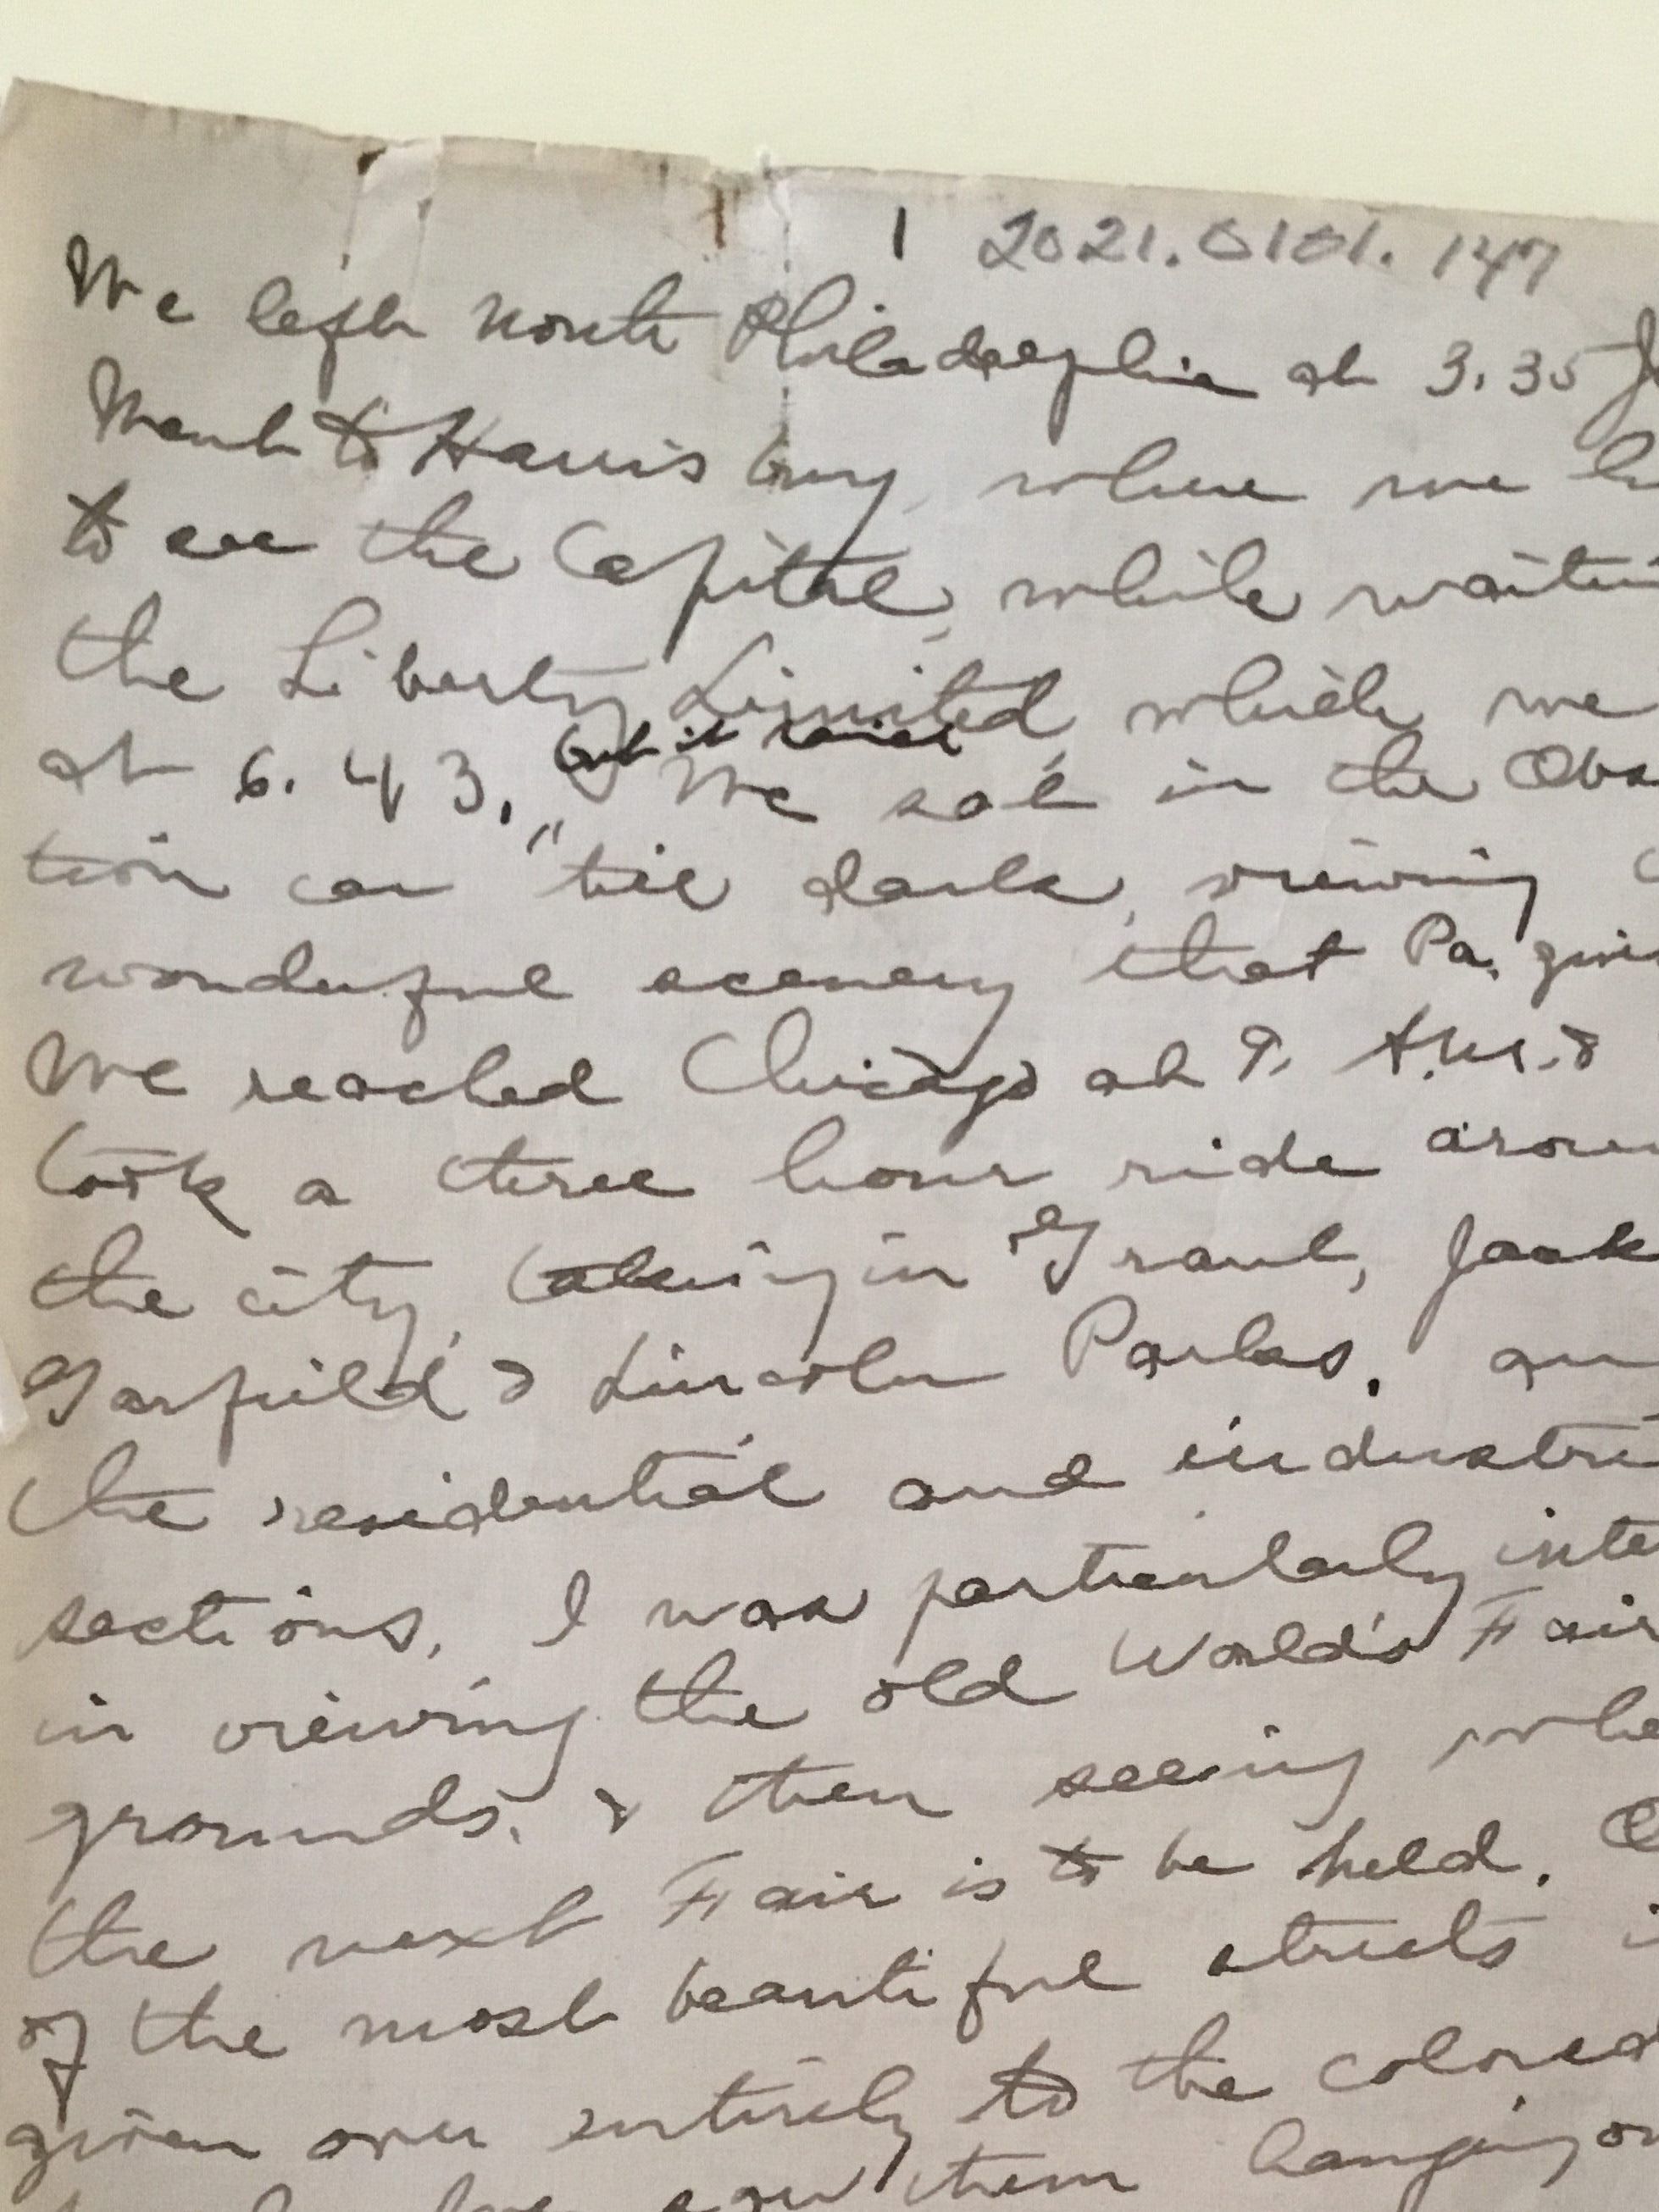 1 2021.0101.147
We left North Philadelphia at 3.35
Went to Harrisburg, where we
to see the Capital, while waitin
the Liberty Limited, which we
but it rained
at 6.43. We sat in the Obs
tion car til dark, viewing
wonderful scenery that Pa. giv
We reached Chicago at 9. A.M. &
took a three hour ride aroun
the city, taking in Grant, Jack
Garfield & Lincoln Parks. an
the residential and industri
sections. I was particularly inte
in viewing the old World's Fair
grounds, & then seeing whe
the next Fair is to be held. O
of the most beautiful streets i
given over entirely to the colored
saw them hanging on